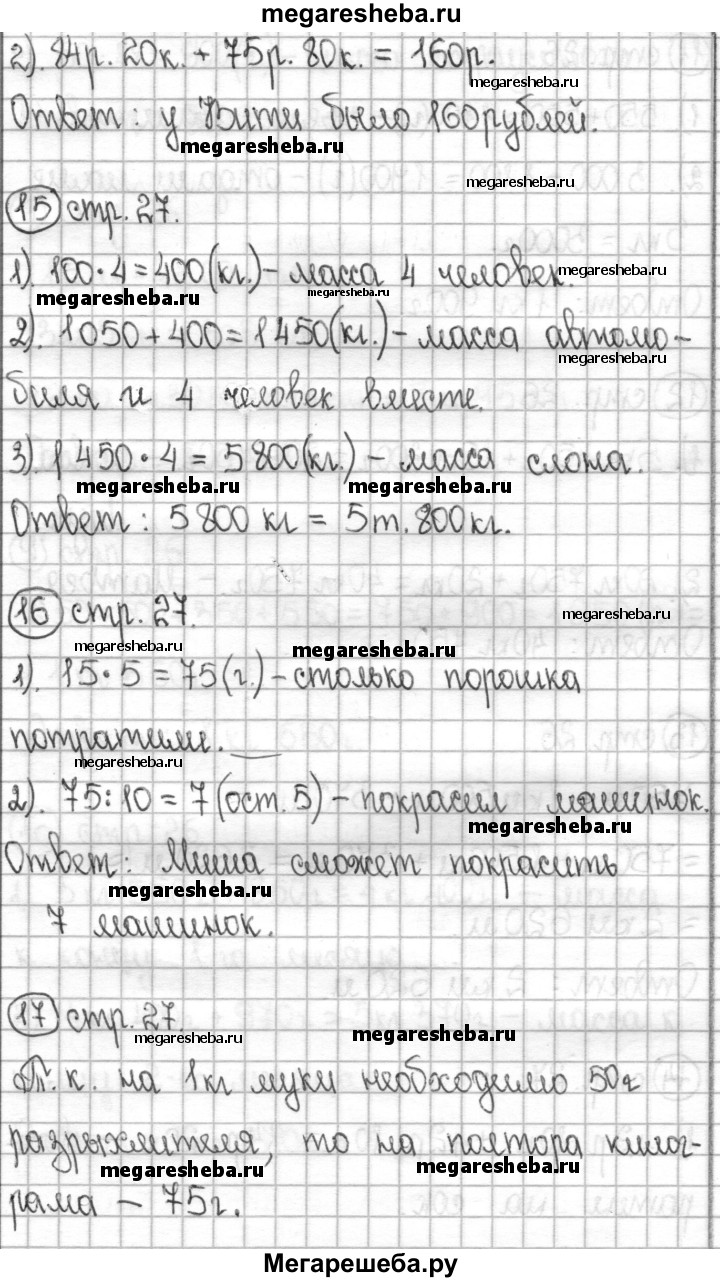 megaresheba.ru
2). 84р. 20к. + 75р. 80к. = 160р.
megaresheba.ru
Ответ: у Вити было 160 рублей.
megaresheba.ru
megaresheba.ru
15 стр. 27.
1). 100·4=400(кг.)- масса 4 человек.
megaresheba.ru
megaresheba.ru
megaresheba.ru
2). 1050+400=1450(кг.)-масса автомо-
megaresheba.ru
биля и 4 человек вместе.
3). 1450·4=5800(кг.)-масса слона.
megaresheba.ru
megaresheba.ru
Ответ: 5800 кг = 5т. 800кг.
16 стр. 27.
megaresheba.ru
megaresheba.ru
megaresheba.ru
1). 15·5=75(г.)-столько порошка
потратили.
megaresheba.ru
2). 75:10=7(ост. 5)-покрасил машинок.
megaresheba.ru
Ответ: Миша сможет покрасить
megaresheba.ru
7 машинок.
17 стр. 27.
megaresheba.ru
megaresheba.ru
Т. к. на 1кг муки необходимо 50г
разрыхлителя, то на полтора килог-
megaresheba.ru
megaresheba.ru
рама - 75г.
Мегарешеба.ру